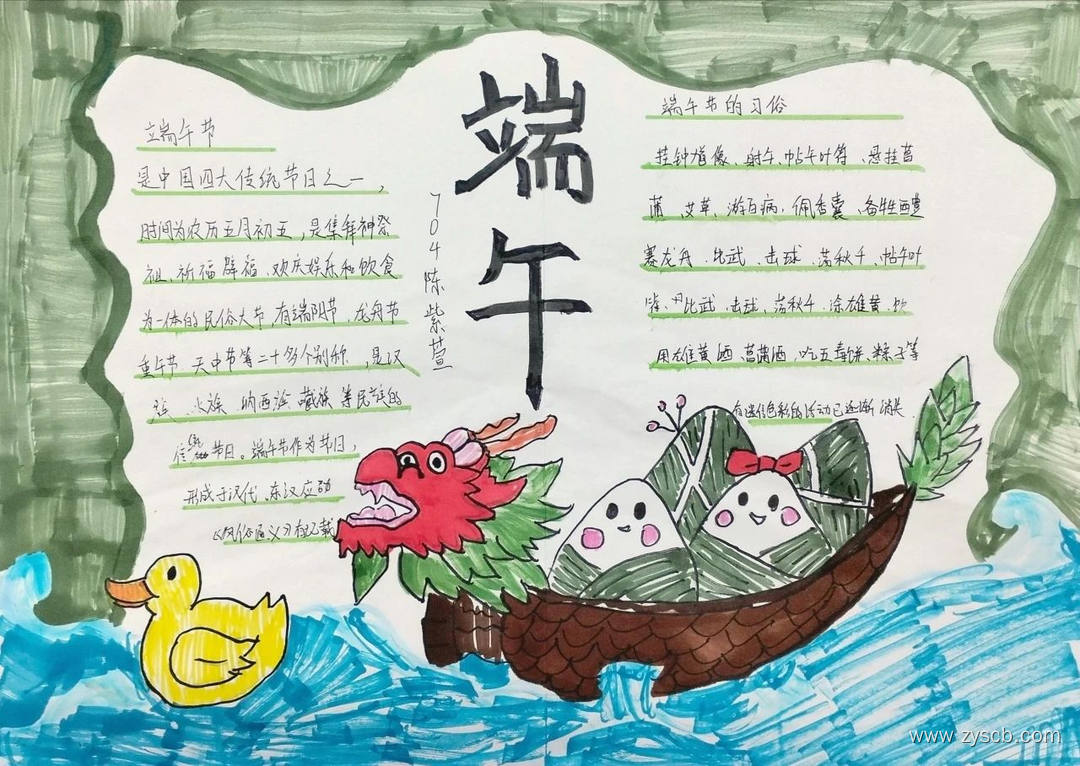 端午节
是中国四大传统节日之一，
时间为农历五月初五，是集拜神祭
祖、祈福辟福、欢庆娱乐和饮食
为一体的民俗大节，有端阳节、龙舟节
重午节、天中节等二十多个别称，是汉
族、水族、纳西族、藏族等民族的
传统节日。端午节作为节日，
形成于汉代、东汉应劭
《风俗通义》有记载
端午
704陈紫萱
端午节的习俗
挂钟馗像、射午、帖午叶符、悬挂菖
蒲、艾草、游百病、佩香囊、备牲醴
赛龙舟、比武、击球、荡秋千、帖午叶
比武、击球、荡秋千、涂雄黄、饮
用雄黄酒、菖蒲酒、吃五毒饼、粽子等
有迷信色彩的活动已逐渐消失
www.zyscb.com